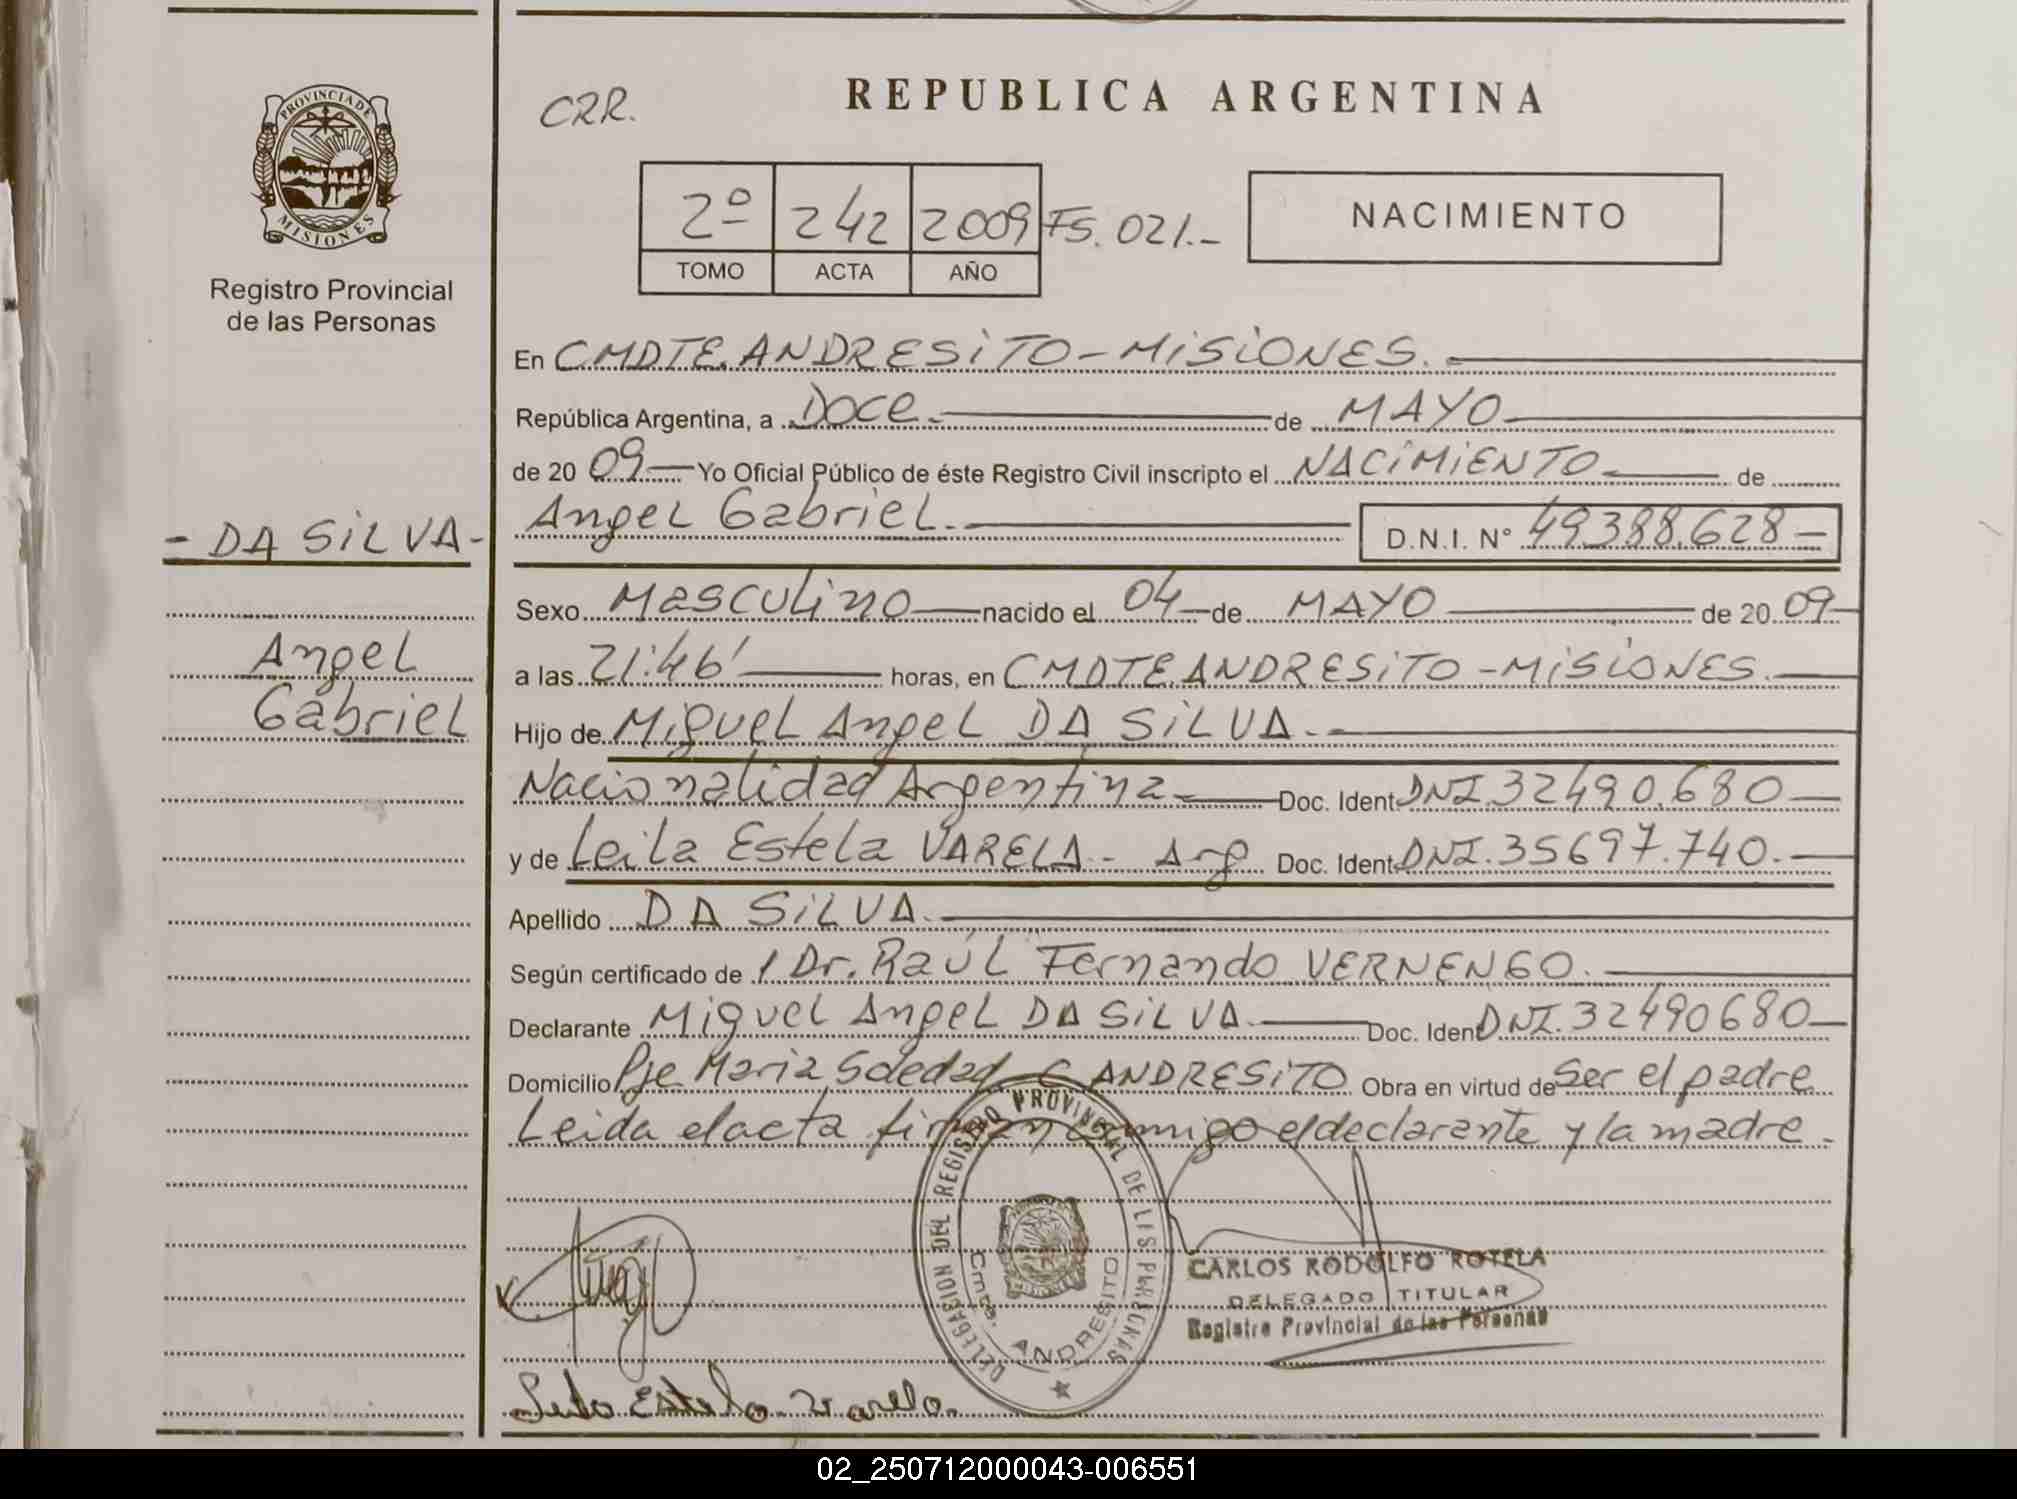 CRR.
REPUBLICA ARGENTINA
PROVINCIA DE
MISIONES
Registro Provincial
de las Personas
2º 242 2009 FS. 021.-
TOMO ACTA AÑO
NACIMIENTO
En CMDTE. ANDRESITO - MISIONES.
República Argentina, a DOCE. de MAYO
de 20 09 Yo Oficial Público de éste Registro Civil inscripto el NACIMIENTO de
- DA SILVA -
Angel Gabriel. D.N.I. Nº 49.388.628 -
Sexo Masculino nacido el 04 de MAYO de 20 09
Angel
Gabriel
a las 21:46' horas, en CMDTE. ANDRESITO - MISIONES.
Hijo de Miguel Angel DA SILVA.
Nacionalidad Argentina Doc. Ident DNI. 32490.680
y de Leila Estela VARELA - Arg. Doc. Ident DNI. 35697.740.
Apellido DA SILVA.
Según certificado de / Dr. Raúl Fernando VERNENGO.
Declarante Miguel Angel DA SILVA. Doc. Ident DNI. 32490680
Domicilio Pje Maria Soledad C ANDRESITO Obra en virtud de Ser el padre
Leida el acta firman conmigo el declarante y la madre.
DELEGACION DEL REGISTRO PROVINCIAL DE LAS PERSONAS
Cmte. ANDRESITO
CARLOS RODOLFO ROTELA
DELEGADO TITULAR
Registro Provincial de las Personas
Estela
02_250712000043-006551